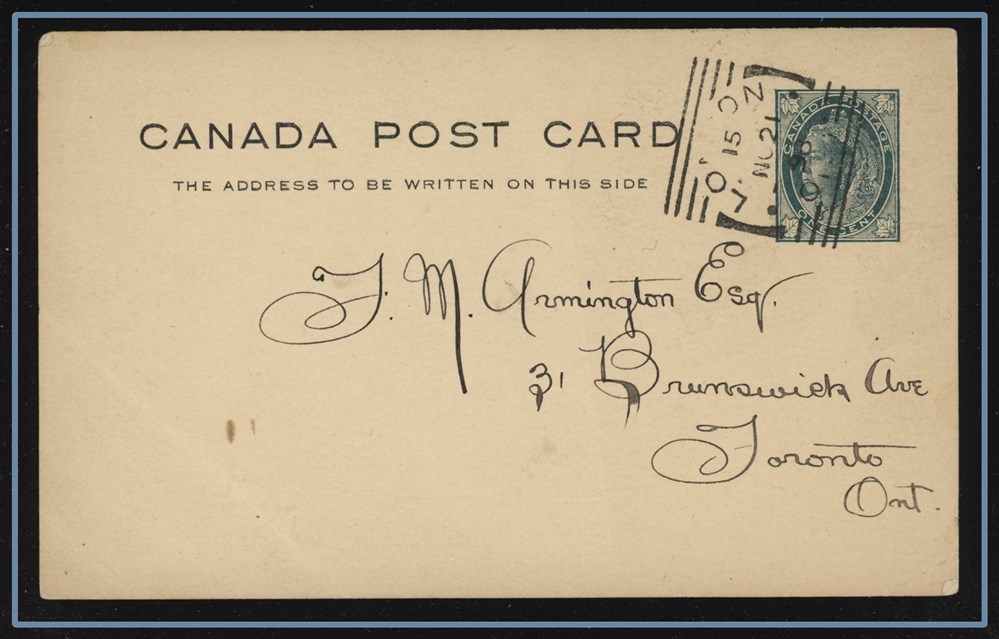 CANADA POST CARD
THE ADDRESS TO BE WRITTEN ON THIS SIDE
CANADA POSTAGE
ONE CENT
15
NO 21
98
J. M. Armington Esq.
31 Brunswick Ave
Toronto
Ont.